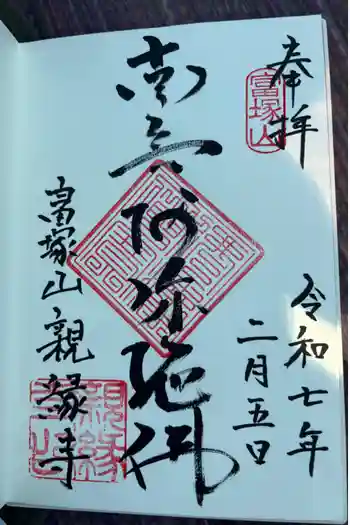 奉拝
富塚山
令和七年
二月五日
南无阿弥陀仏
富塚山親縁寺